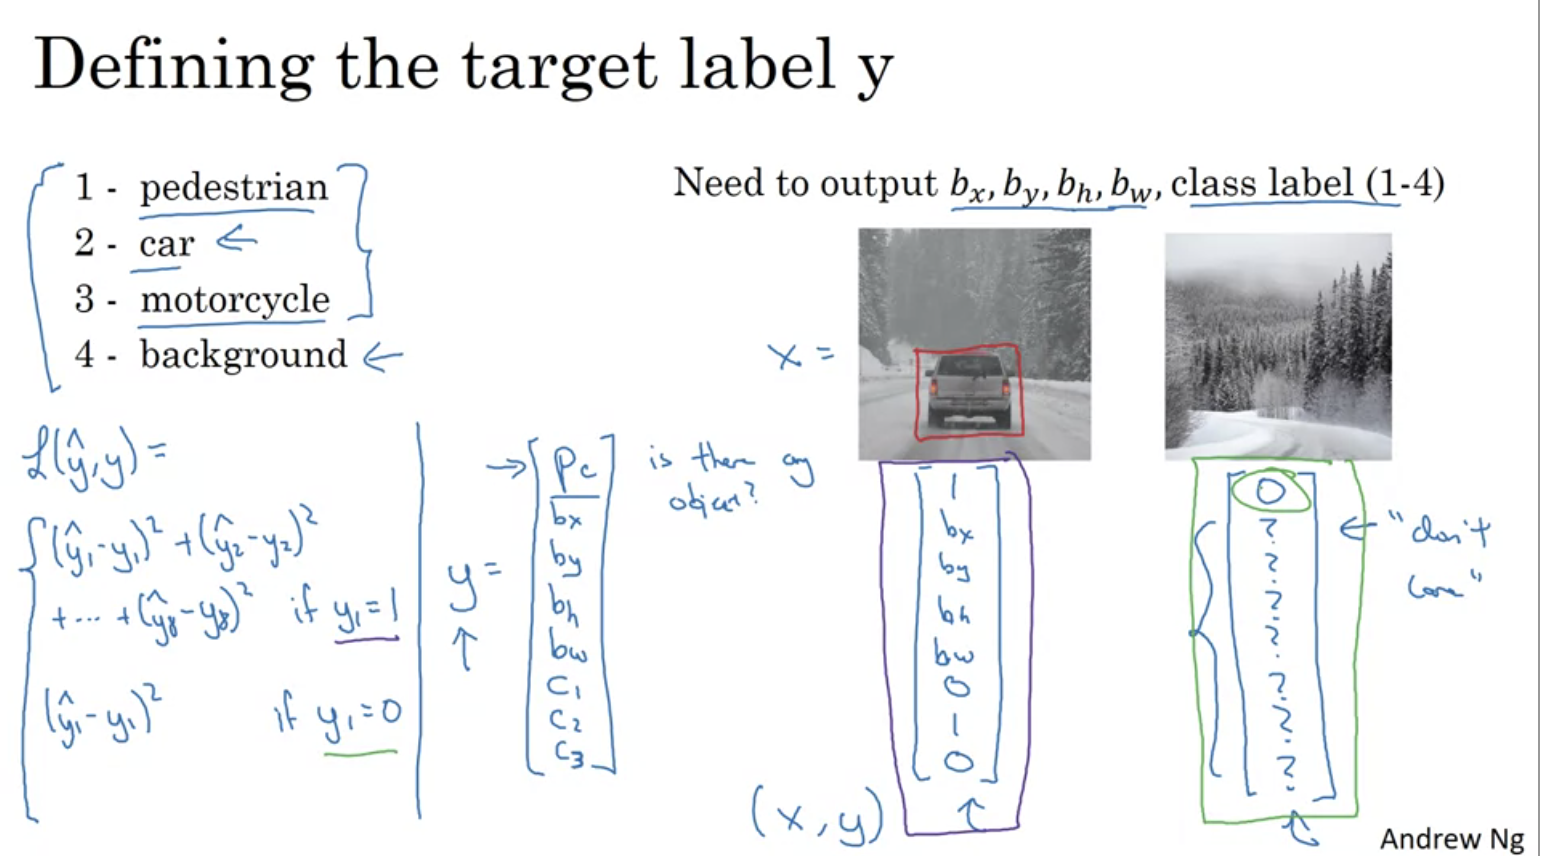 Defining the target label y
1 - pedestrian
2 - car ←
3 - motorcycle
4 - background ←
Need to output bₓ, b_y, b_h, b_w, class label (1-4)
x =
ℒ(ŷ, y) =
(ŷ₁ - y₁)² + (ŷ₂ - y₂)²
+ ... + (ŷ₈ - y₈)² if y₁ = 1
(ŷ₁ - y₁)² if y₁ = 0
y =
→ Pc
bx
by
bh
bw
C1
C2
C3
is there any
object?
1
bx
by
bh
bw
0
1
0
(x, y)
0
?
?
?
?
?
?
?
← "don't
care"
Andrew Ng